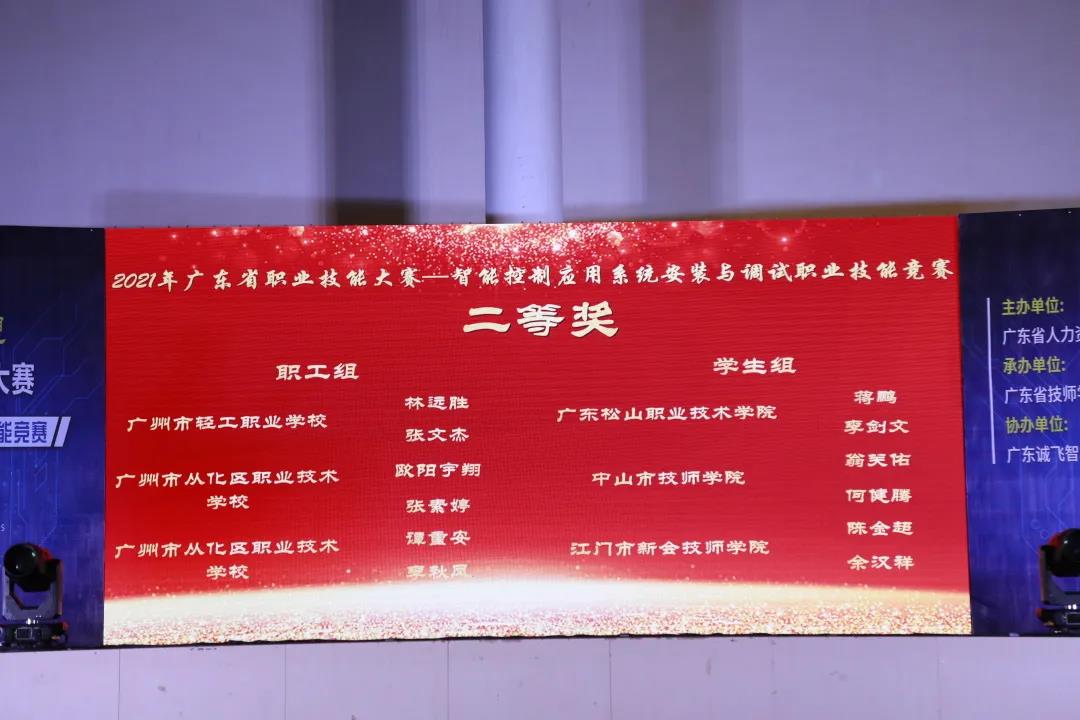 2021年广东省职业技能大赛—智能控制应用系统安装与调试职业技能竞赛
二等奖
职工组
广州市轻工职业学校
林远胜
张文杰
广州市从化区职业技术
学校
欧阳宇翔
张素婷
广州市从化区职业技术
学校
谭重安
李秋凤
学生组
广东松山职业技术学院
蒋鹏
李剑文
中山市技师学院
翁笑佑
何健腾
江门市新会技师学院
陈金超
余汉祥
大赛
能竞赛
主办单位:
广东省人力资
承办单位:
广东省技师学
协办单位:
广东诚飞智